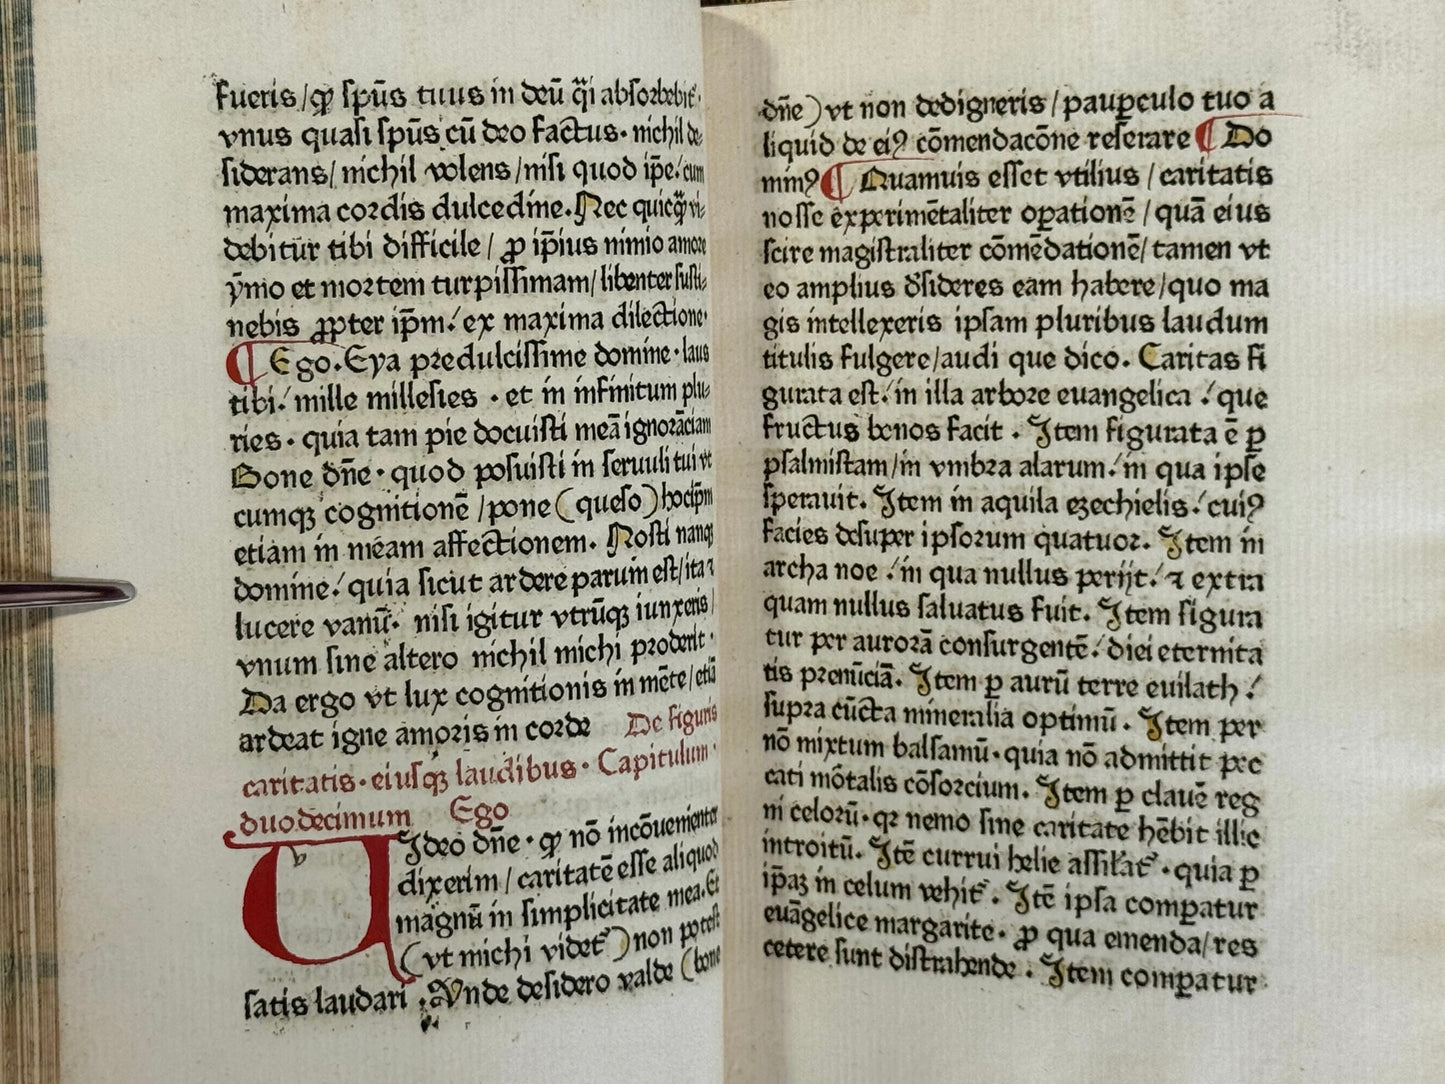 fueris/ꝙ spūs tuus in deū q̄i absorbebitᷣ.
vnus quasi spūs cū deo factus. nichil de-
siderans/ nichil volens/nisi quod ip̄e: cum
maxima cordis dulcedine. Nec quicq̄ vi-
debitur tibi difficile/ ꝓ ip̄ius nimio amore
ymo et mortem turpissimam/ libenter susti-
nebis ꝓpter ip̄m: ex maxima dilectione.
¶ Ego. Eya predulcissime domine. laus
tibi: mille millesies . et in infinitum plu-
ries. quia tam pie docuisti meā ignorāciam
Bone dn̄e. quod posuisti in seruuli tui vt
cumqꝫ cognitionē /pone (queso) hocip̄m
etiam in meam affectionem. Nosti nanqꝫ
domine: quia sicut ardere parum est/ita ⁊
lucere vanū. nisi igitur vtrūqꝫ iunxeris/
vnum sine altero nichil michi proderit.
Da ergo vt lux cognitionis in mēte/etiā
ardeat igne amoris in corde De figuris
caritatis. eiusqꝫ laudibus. Capitulum.
duodecimum Ego
VIdeo dn̄e. ꝙ nō incōuenienter
dixerim / caritatē esse aliquod
magnū in simplicitate mea. Et
(vt michi videtᷣ) non potest
satis laudari . Vnde desidero valde (bone
dn̄e) vt non dedigneris/ pauꝑculo tuo a
liquid de eiꝰ cōmendacōne referare ¶ Do
minꝰ ¶ Quamuis esset vtilius / caritatis
nosse experimētaliter oꝑationē / quā eius
scire magistraliter cōmēdationē/ tamen vt
eo amplius dʼsideres eam habere/quo ma
gis intellexeris ipsam pluribus laudum
titulis fulgere/audi que dico. Caritas fi
gurata est: in illa arbore euangelica : que
fructus bonos facit . Item figurata ē ꝑ
psalmistam/in vmbra alarum: in qua ipse
sperauit. Item in aquila ezechielis: cuiꝰ
facies desuper ipsorum quatuor. Item in
archa noe : in qua nullus perijt: ⁊ extra
quam nullus saluatus fuit. Item figura
tur per aurorā consurgentē: diei eternita
tis prenūciā. Item ꝑ aurū terre euilath :
supra cūcta mineralia optimū . Item per
nō mixtum balsamū. quia nō admittit pec
cati mōtalis cōsorcium. Item ꝑ clauē reg
ni celorū. qꝛ nemo sine caritate hēbit illic
introitū. Itē currui helie assilʼatᷣ . quia ꝑ
ip̄aꝫ in celum vehitᷣ . Itē ipsa comꝑatur
euāgelice margarite. ꝓ qua emenda/ res
cetere sunt distrahende . Item comꝑatur